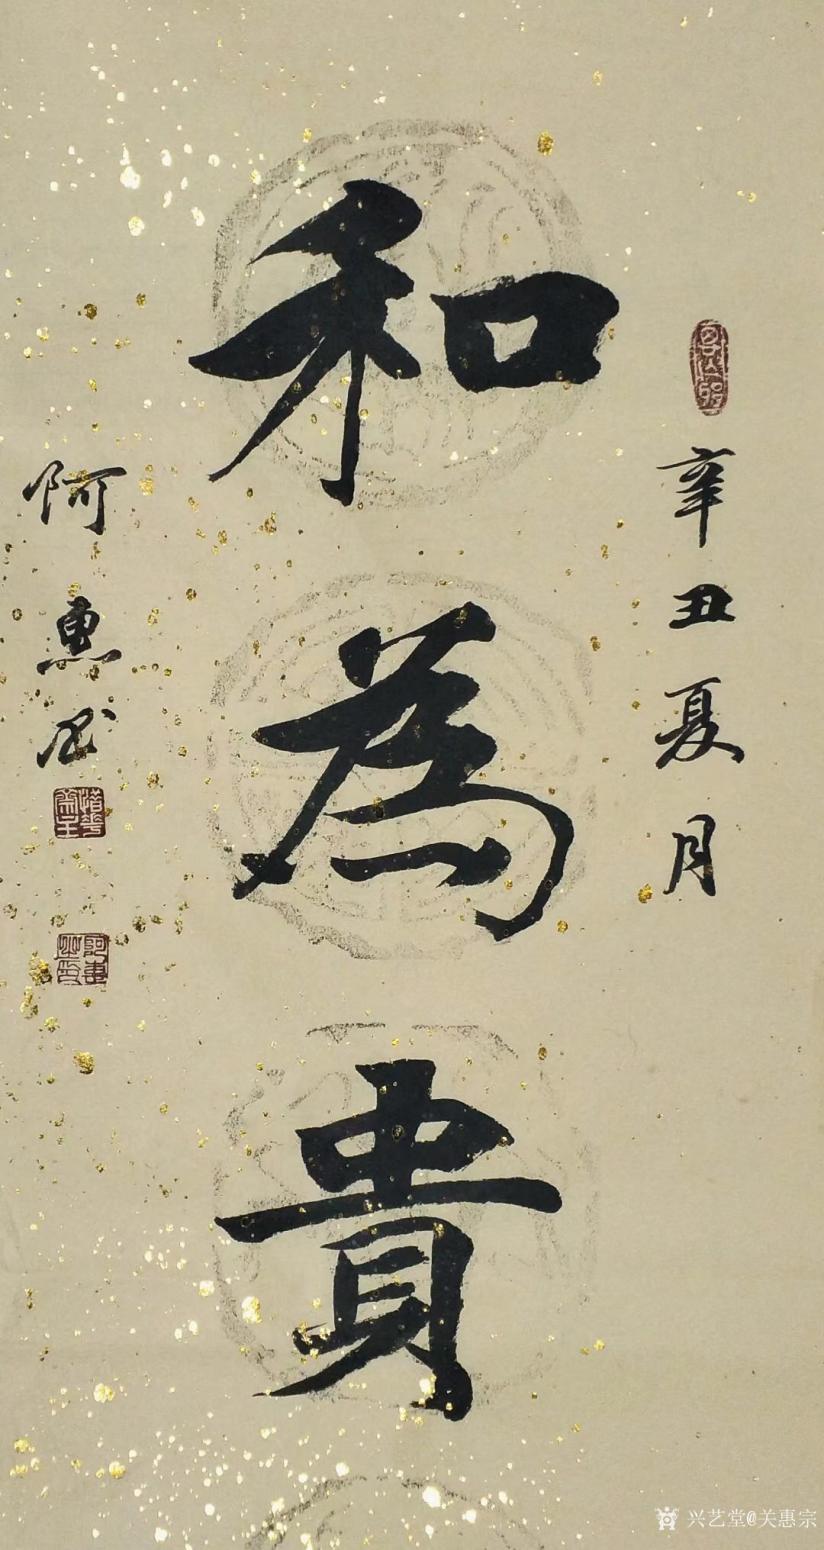 和為貴
辛丑夏月
阿惠书
兴艺堂@关惠宗